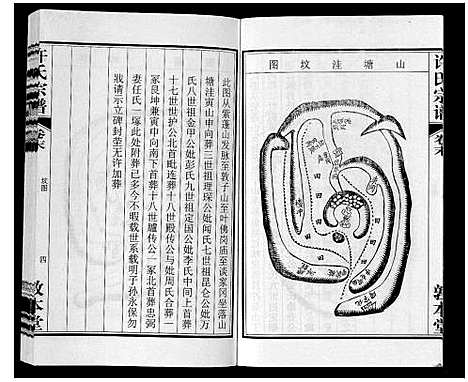 山塘洼坟图
许氏宗谱
卷末
敦本堂
此图从紫蓬山发脉至敦子山至叶佛岗庙至谈家冈坐落山
塘洼寅山申向葬三世祖理琛公妣闻氏七世祖昆仑公妣万
氏八世祖金甲公妣彭氏九世祖定国公妣李氏中间上首葬
十七世世护公北首毗连葬十八世殿传公与妣周氏合葬一
冢艮坤兼寅申向南下首葬十八世胪传公一冢北首葬忠弼
妻任氏一塚此处附葬已多今不暇载世系载明子孙永保勿
戕请示立碑封茔无许加葬
许氏宗谱
卷末
坟图
四
敦本堂